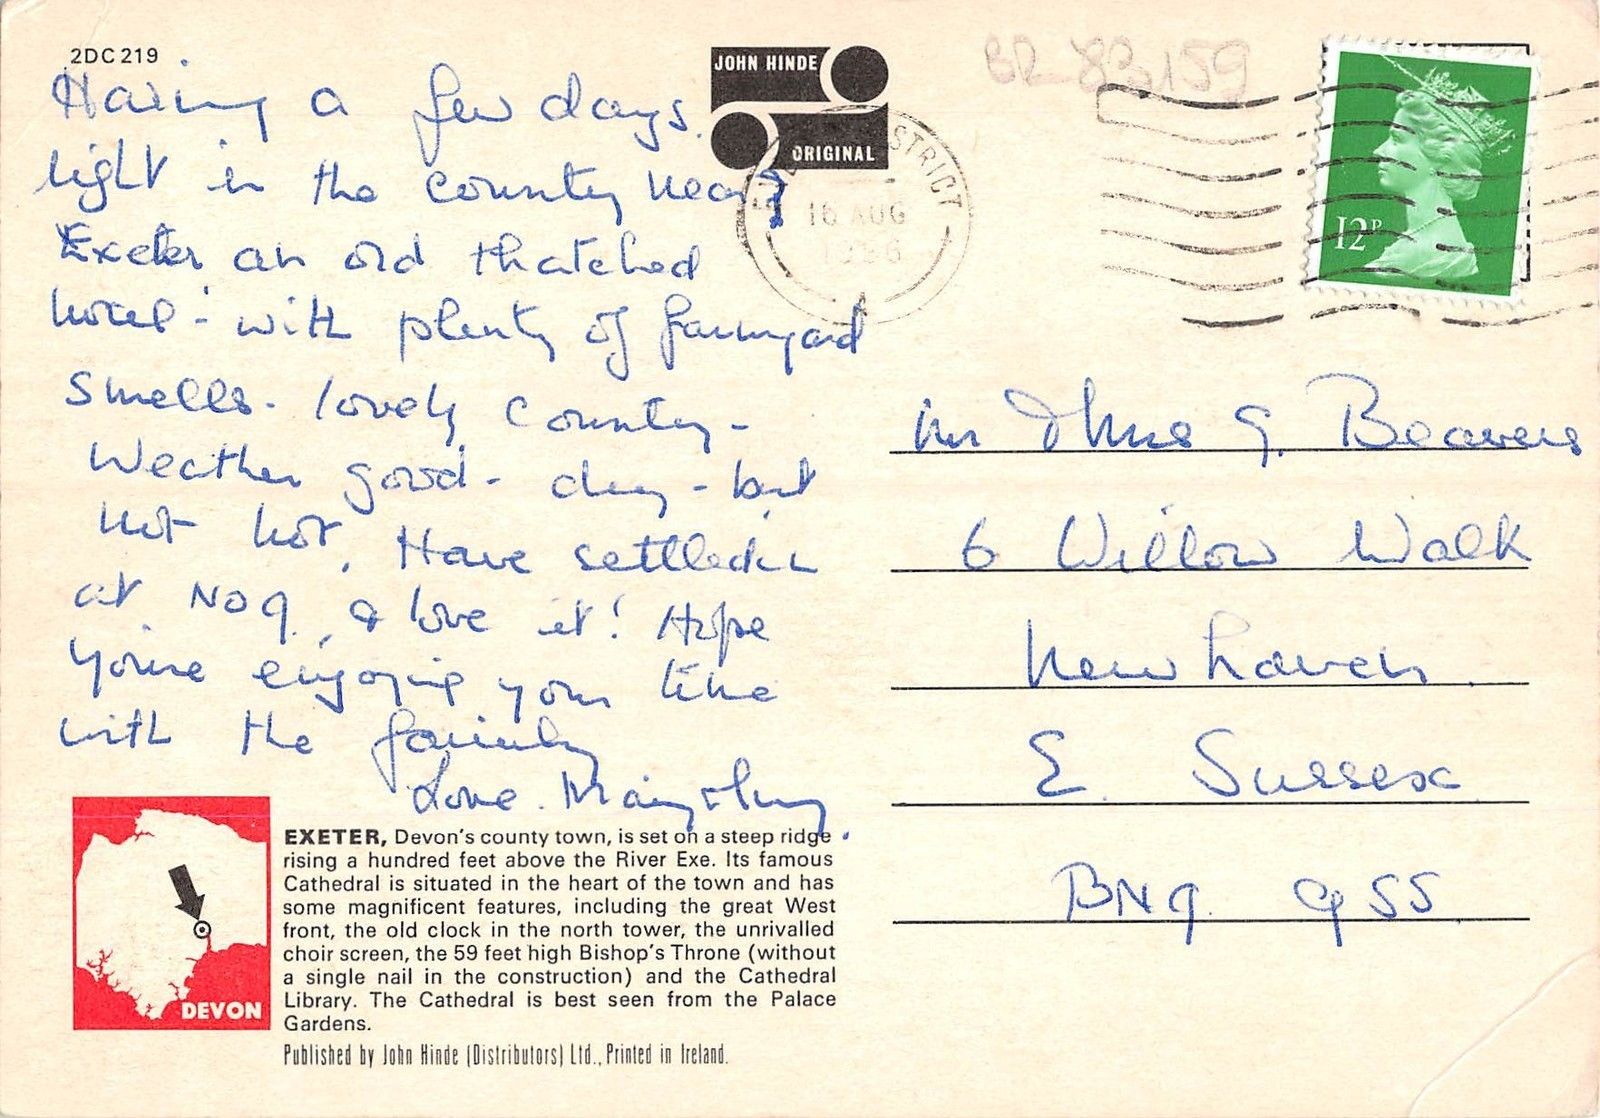 2DC 219
Having a few days.
right in the country near
Exeter an old thatched
hotel - with plenty of farmyard
smells - lovely country -
Weather good - dry - but
not hot. Have settled in
at No 9. & love it! Hope
you're enjoying your time
with the family
Love.
JOHN HINDE
ORIGINAL
STRICT
16 AUG
1986
BR 159
12P
Mr & Mrs G. Beavers
6 Willow Walk
Newhaven.
E. Sussex
BN9 9SS
DEVON
EXETER, Devon's county town, is set on a steep ridge
rising a hundred feet above the River Exe. Its famous
Cathedral is situated in the heart of the town and has
some magnificent features, including the great West
front, the old clock in the north tower, the unrivalled
choir screen, the 59 feet high Bishop's Throne (without
a single nail in the construction) and the Cathedral
Library. The Cathedral is best seen from the Palace
Gardens.
Published by John Hinde (Distributors) Ltd., Printed in Ireland.